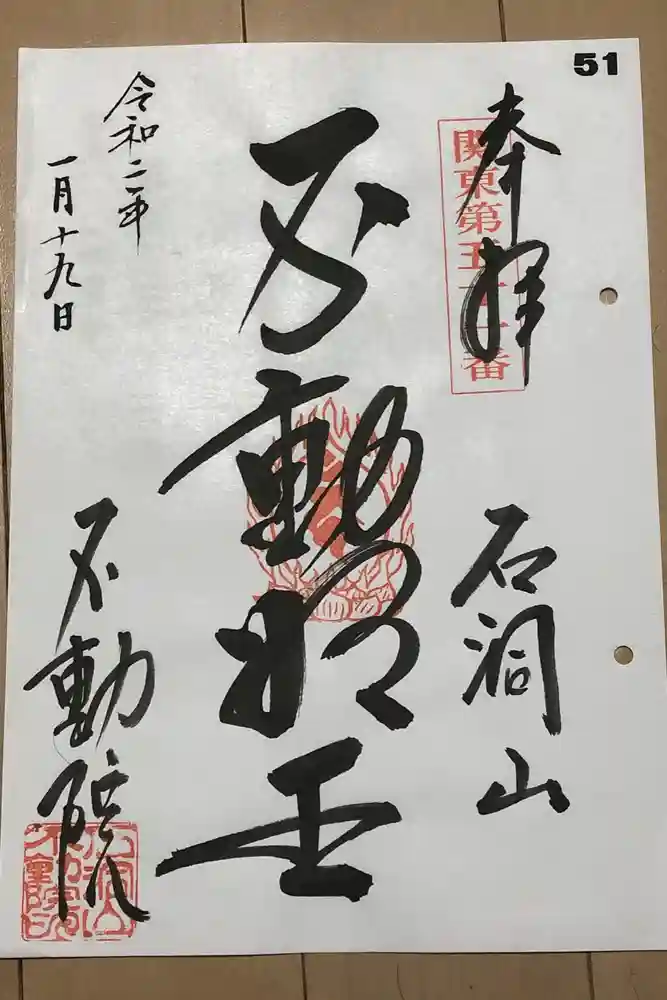 51
奉拝
関東第五十一番
石洞山
不動明王
令和二年
一月十九日
不動院